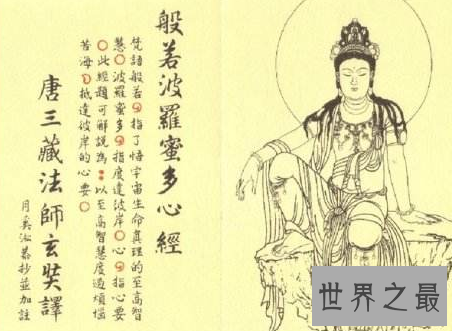 般若波羅蜜多心經
梵語般若，指了悟宇宙生命真理的至高智
慧。波羅蜜多，指度達彼岸。心，指心要
。此經題可解說為：以至高智慧度過煩惱
苦海，抵達彼岸的心要。
唐三藏法師玄奘譯
恭抄並加註
世界之最